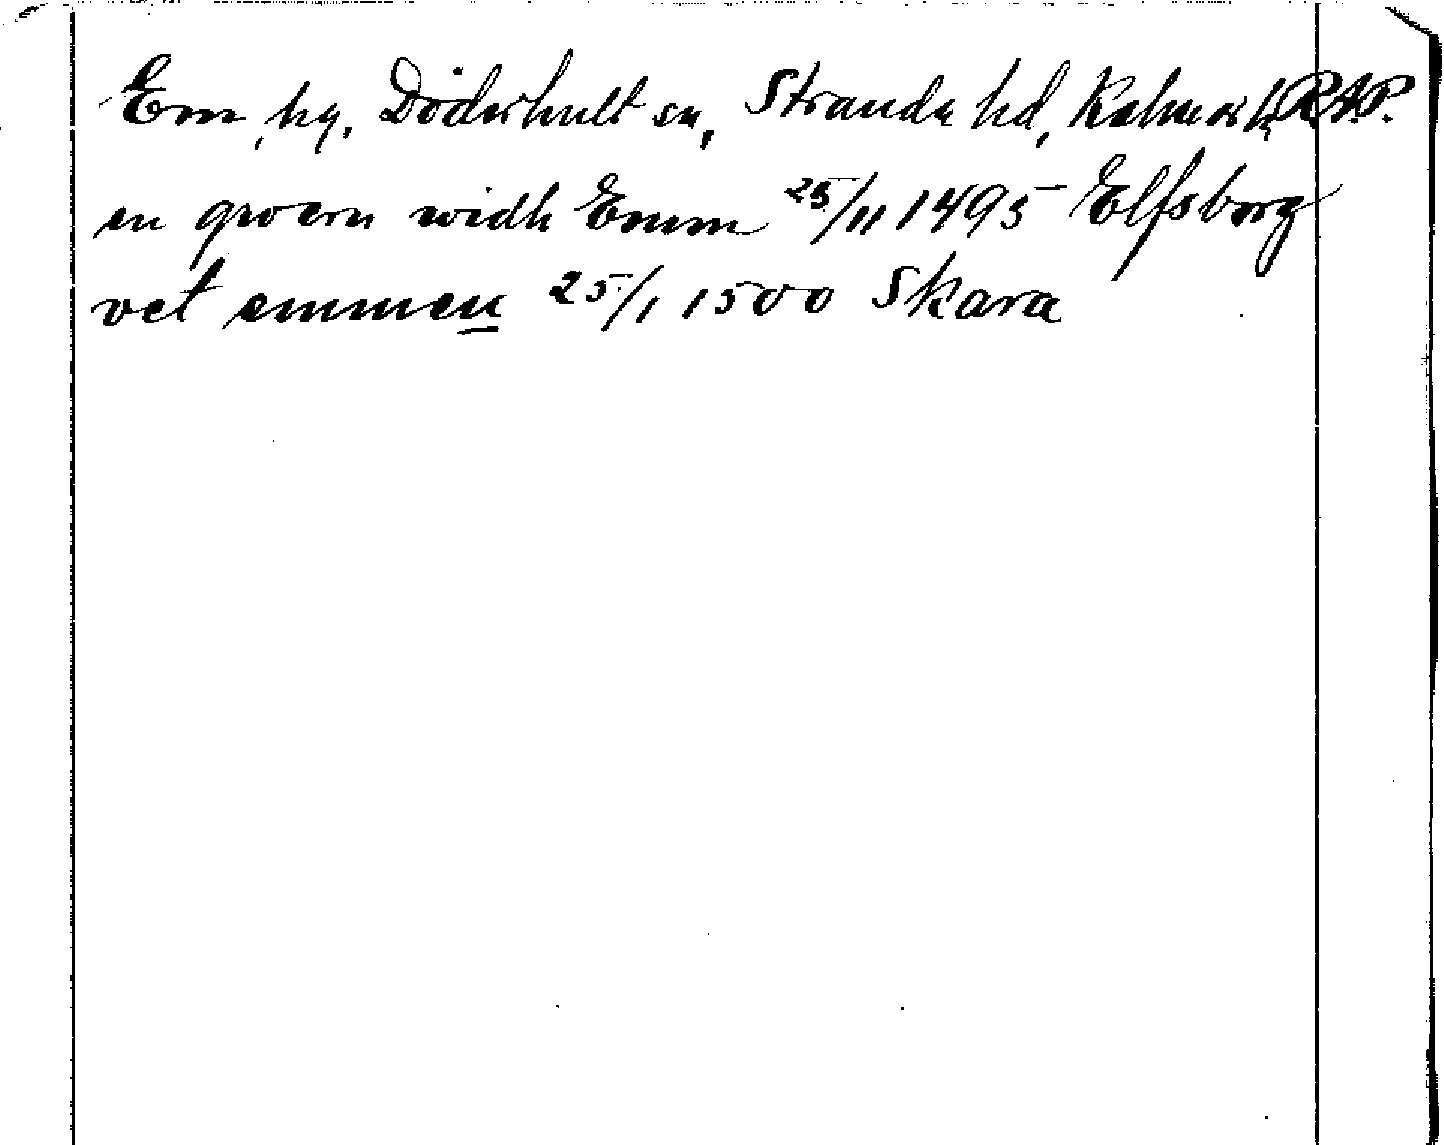 Em, hg, Döderhult sn, Stranda hd, Kalmar l, RAP.
en qwern widh Emm 25/11 1495 Elfsborg
vet emmen 25/1 1500 Skara